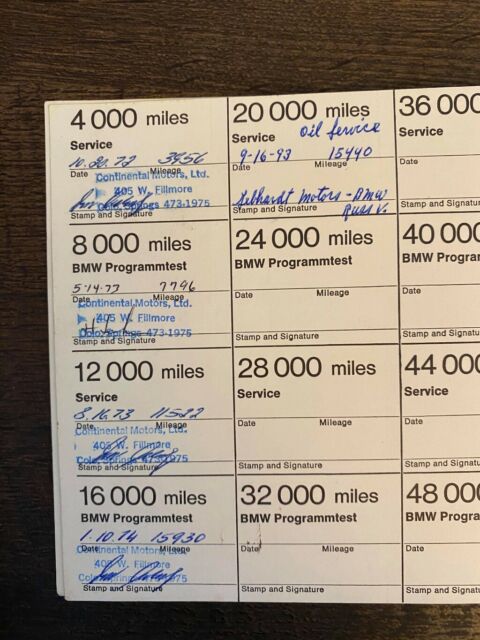 4 000 miles
Service
10.20.72 3956
Date Mileage
Continental Motors, Ltd.
405 W. Fillmore
Colo. Springs 473-1975
Stamp and Signature
8 000 miles
BMW Programmtest
5-14-73 7796
Date Mileage
Continental Motors, Ltd.
405 W. Fillmore
Colo. Springs 473-1975
Stamp and Signature
12 000 miles
Service
8.16.73 11522
Date Mileage
Continental Motors, Ltd.
405 W. Fillmore
Colo. Springs 473-1975
Stamp and Signature
16 000 miles
BMW Programmtest
1.10.74 15930
Date Mileage
Continental Motors, Ltd.
405 W. Fillmore
Colo. Springs 475
Stamp and Signature
20 000 miles
Service oil Service
9-16-93 15440
Date Mileage
Motors - BMW
Russ V.
Stamp and Signature
24 000 miles
BMW Programmtest
Date Mileage
Stamp and Signature
28 000 miles
Service
Date Mileage
Stamp and Signature
32 000 miles
BMW Programmtest
Date Mileage
Stamp and Signature
36 000
Service
Date
Stamp and Signatu
40 000
BMW Progran
Date
Stamp and Signatu
44 000
Service
Date
Stamp and Signatu
48 000
BMW Progra
Date
Stamp and Signatu